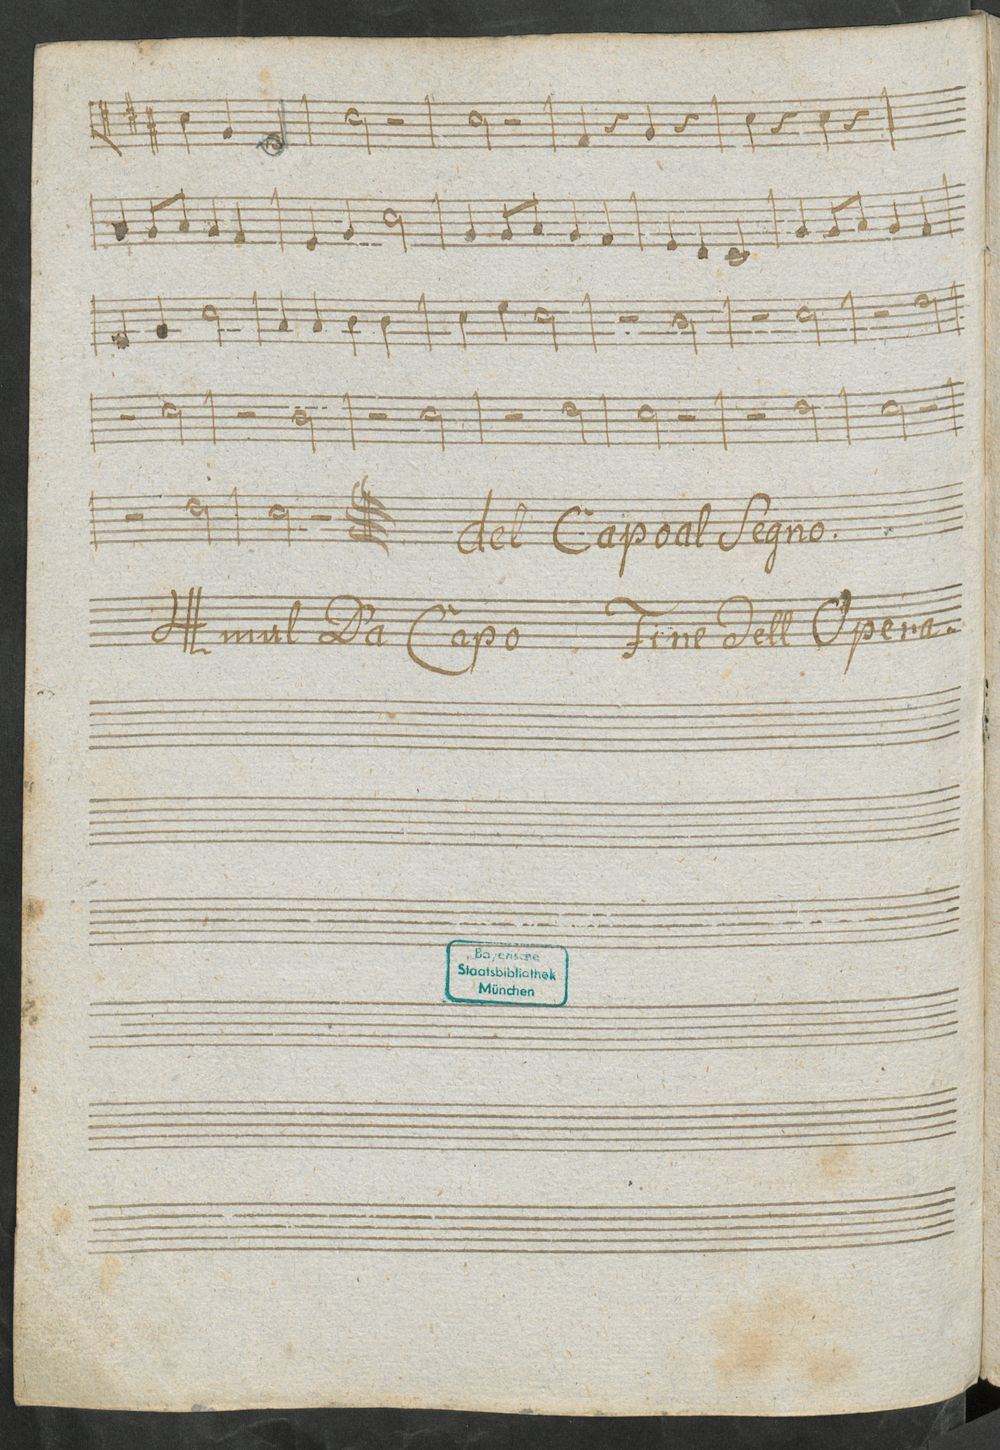 del Capo al Segno.
4 mul Da Capo Fine dell Opera.
Bayerische
Staatsbibliothek
München